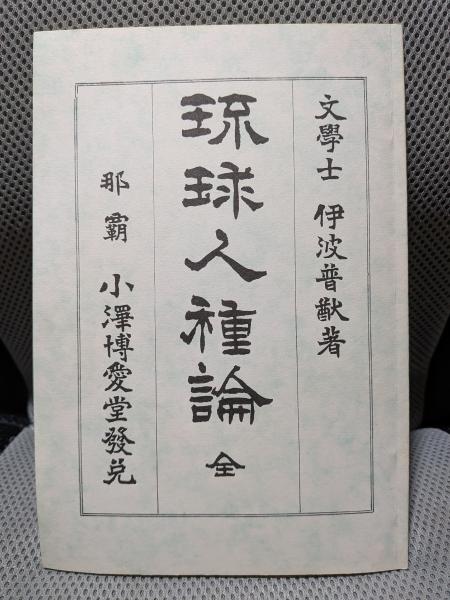 文學士 伊波普猷著
琉球人種論 全
那霸 小澤博愛堂發兌